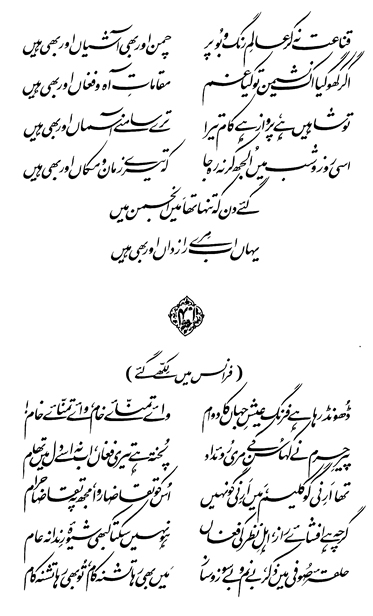 قناعت نہ کر عالمِ رنگ و بو پر چمن اور بھی آشیاں اور بھی ہیں
اگر کھو گیا اک نشیمن تو کیا غم مقاماتِ آہ و فغاں اور بھی ہیں
تو شاہیں ہے پرواز ہے کام تیرا ترے سامنے آسماں اور بھی ہیں
اسی روز و شب میں الجھ کر نہ رہ جا کہ تیرے زمان و مکاں اور بھی ہیں
گئے دن کہ تنہا تھا میں انجمن میں
یہاں اب مرے رازداں اور بھی ہیں
(فرانس میں لکھے گئے)
ڈھونڈ رہا ہے فرنگ عیشِ جہاں کا دوام وائے تمنائے خام وائے تمنائے خام!
پیرِ حرم نے کہا سن کے مری روئداد پختہ ہے تیری فغاں اب نہ اسے دل میں تھام
تھا ارنی گو کلیم میں ارنی گو نہیں اس کو تقاضا روا مجھ پہ تقاضا حرام
گرچہ ہے افشائے راز اہلِ نظر کی فغاں ہو نہیں سکتا کبھی شیوۂ رندانہ عام
حلقۂ صوفی میں ذکر بے نم و بے سوز و ساز میں بھی رہا تشنہ کام تو بھی رہا تشنہ کام